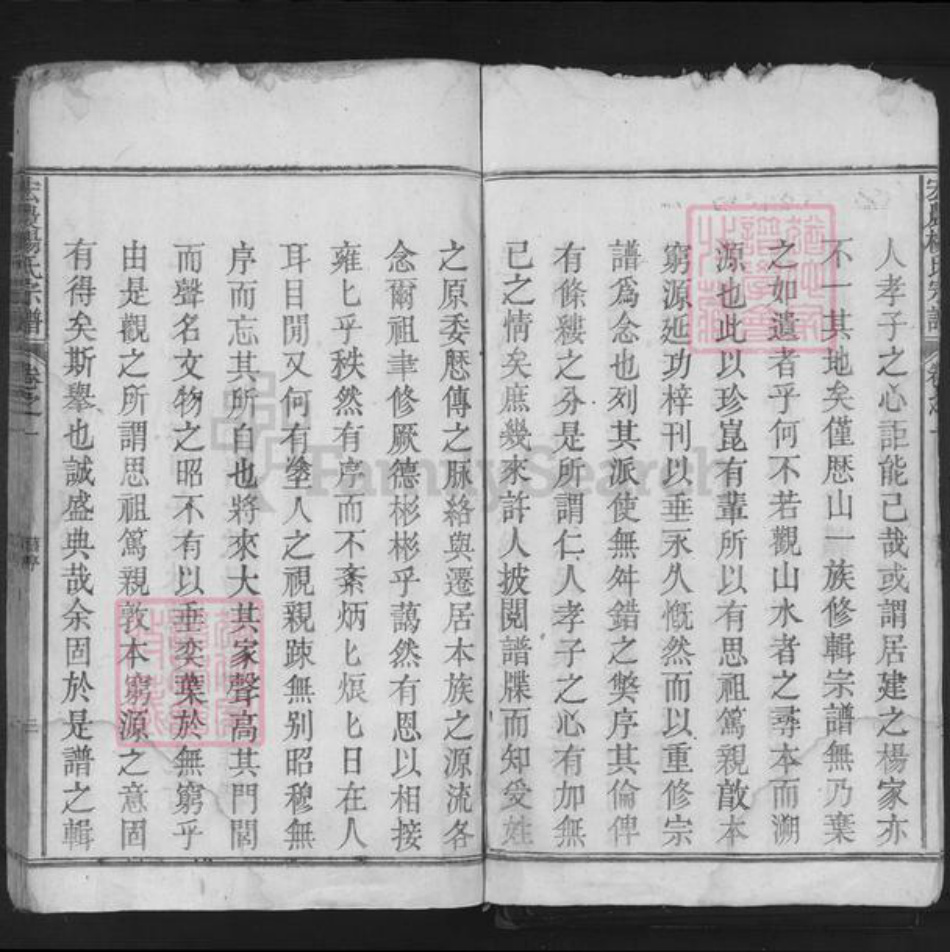 人孝子之心詎能已哉或謂居建之楊家亦
不一其地矣僅歷山一族修輯宗譜無乃棄
之如遺者乎何不若觀山水者之尋本而溯
源也此以珍崑有輩所以有思祖篤親敦本
窮源延功梓刊以垂永久慨然而以重修宗
譜爲念也列其派使無舛錯之獘序其倫俾
有條縷之分是所謂仁人孝子之心有加無
已之情矣庶幾來許人披閱譜牒而知受姓
之原委歷傳之脉絡與遷居本族之源流各
念爾祖聿修厥德彬彬乎藹然有恩以相接
雍匕乎秩然有序而不紊炳匕烺匕日在人
耳目閒又何有塗人之視親踈無别昭穆無
序而忘其所自也將來大其家聲高其門閭
而聲名文物之昭不有以垂奕葉於無窮乎
由是觀之所謂思祖篤親敦本窮源之意固
有得矣斯舉也誠盛典哉余固於是譜之輯
宏農楊氏宗譜 卷之一 舊序 二
FamilySearch